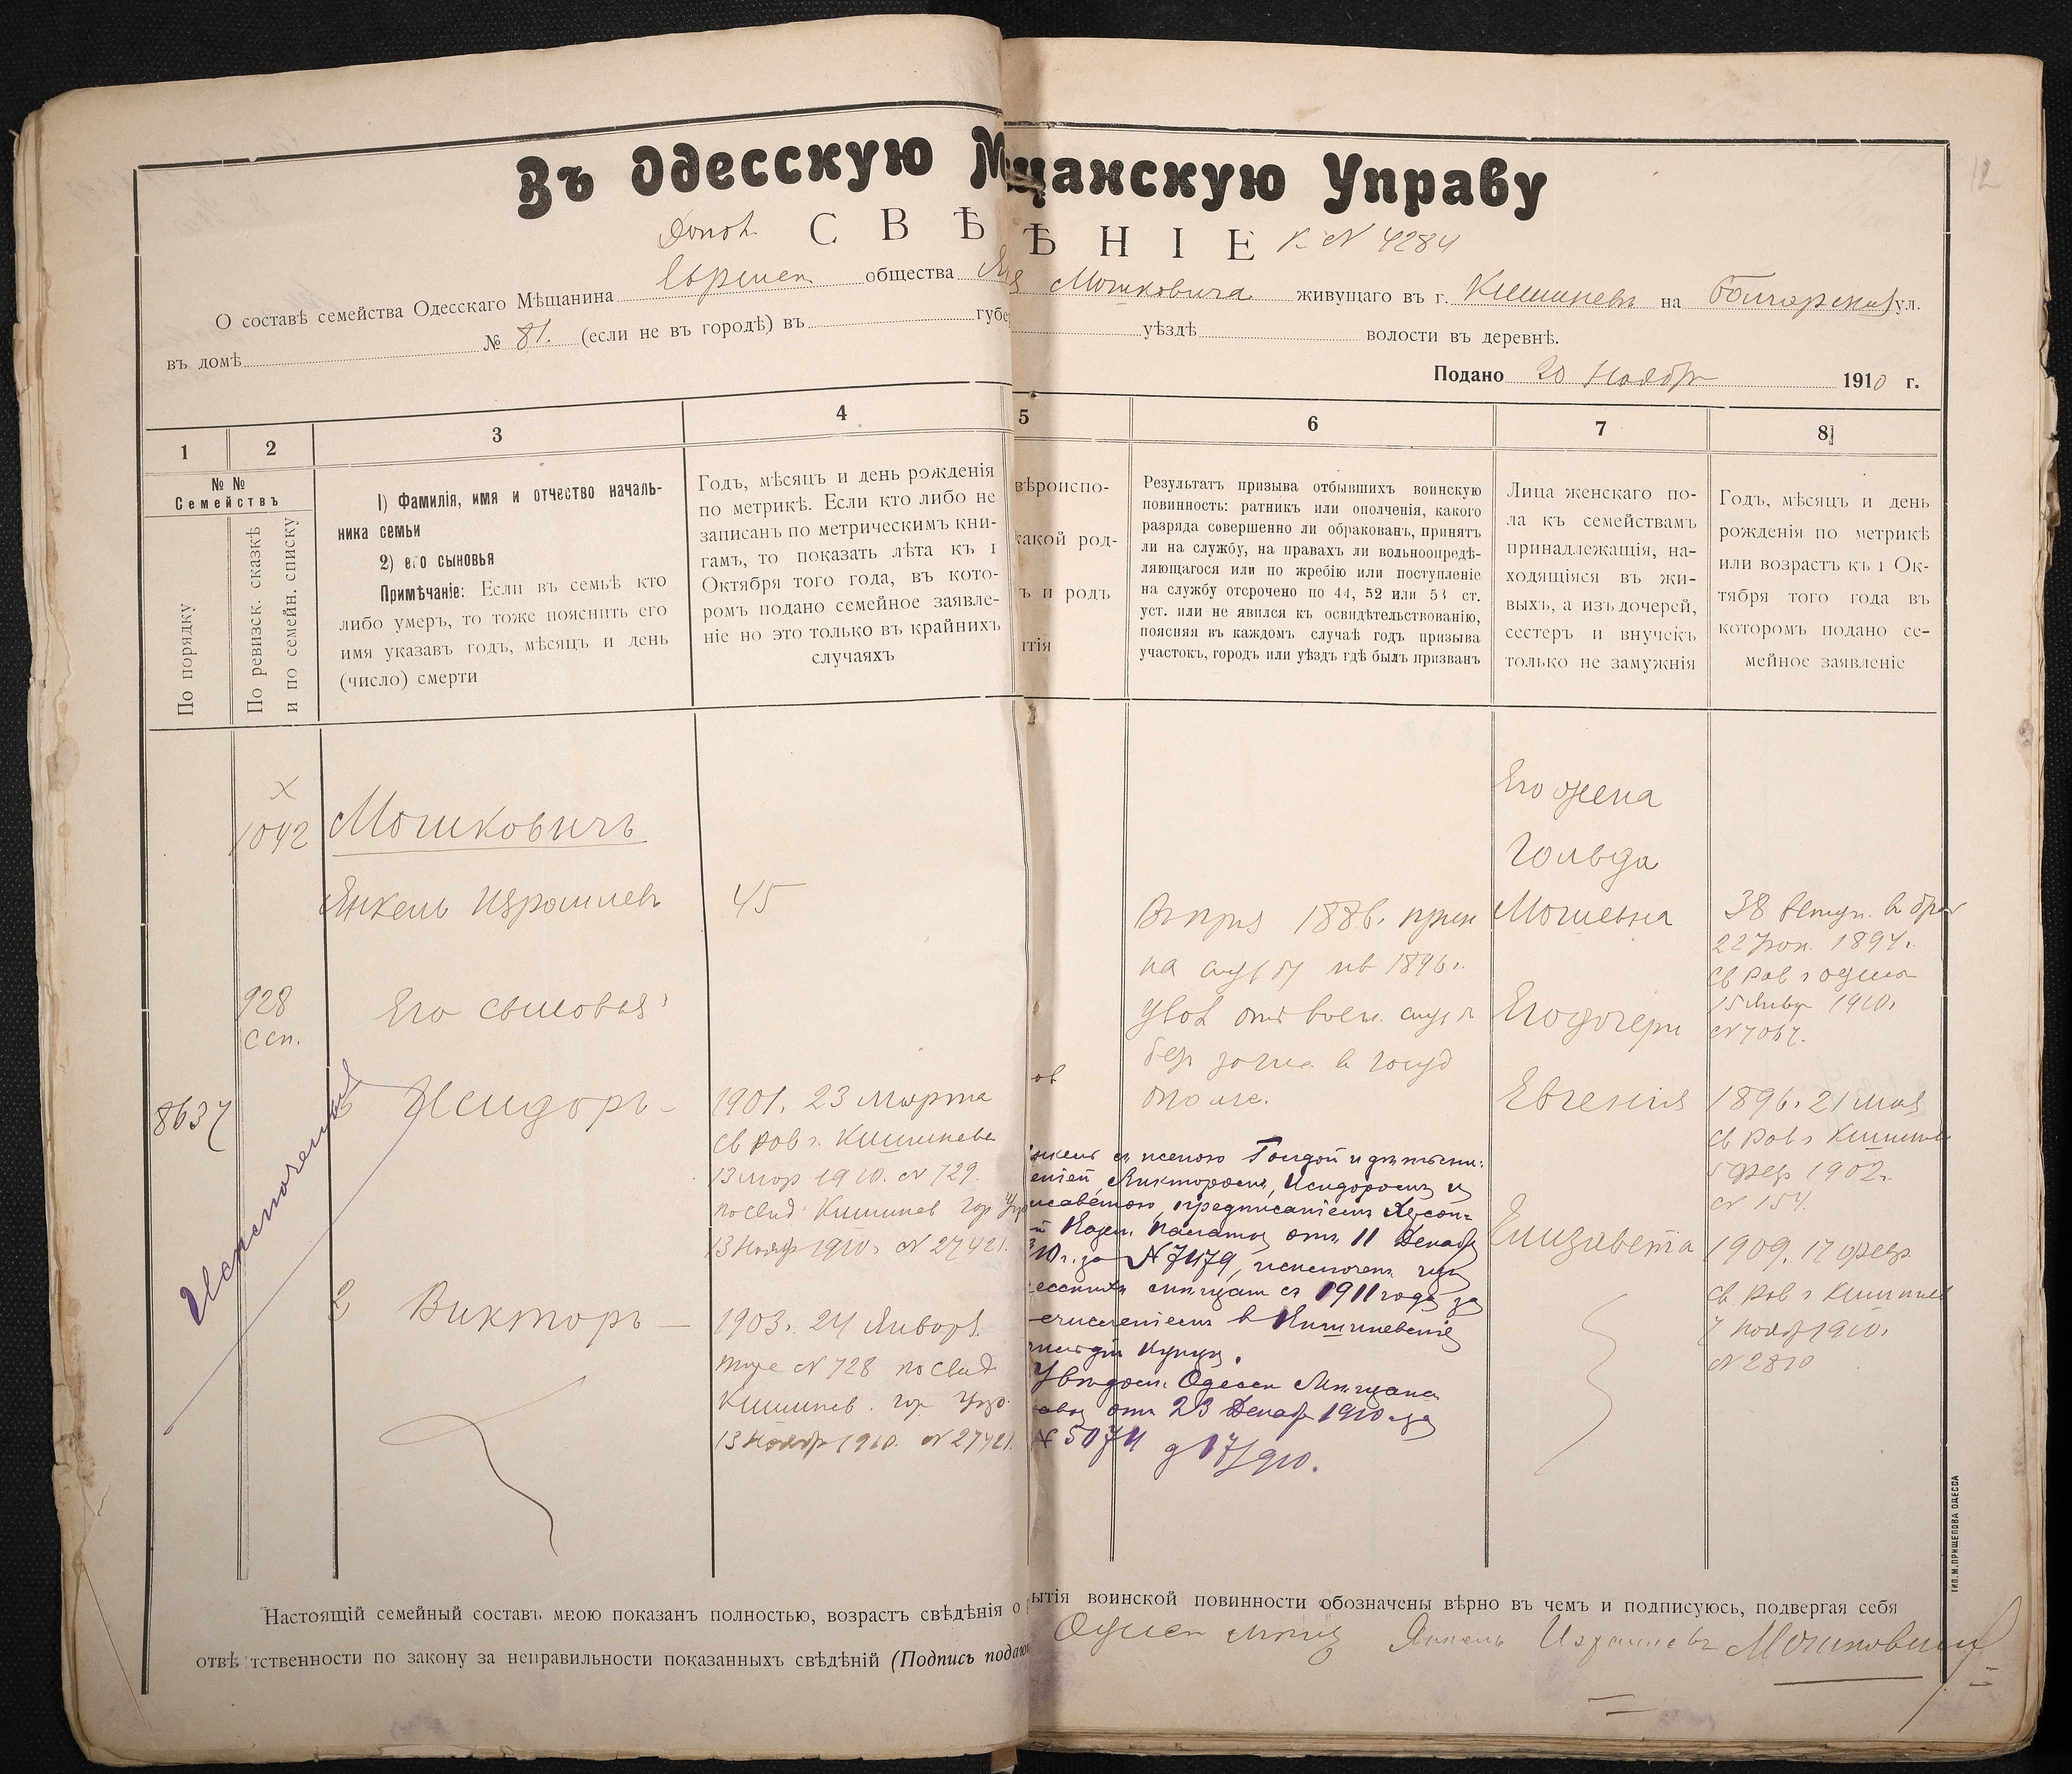 12
Въ Одесскую М щанскую Управу
Допол. СВѢ ѢНІЕ К № 4284
О составѣ семейства Одесскаго Мѣщанина Еврейск общества Мошковича живущаго въ г. Кишиневъ на Болгарской ул.
въ домѣ № 81. (если не въ городѣ) въ губе уѣздѣ волости въ деревнѣ.
Подано 20 Ноября 1910 г.
1 2 3 4 5 6 7 8
№ №
Семействъ
По порядку
По ревизск. сказкѣ
и по семейн. списку
1) Фамилія, имя и отчество началь-
ника семьи
2) его сыновья
Примѣчаніе: Если въ семьѣ кто
либо умеръ, то тоже пояснить его
имя указавъ годъ, мѣсяцъ и день
(число) смерти
Годъ, мѣсяцъ и день рожденія
по метрикѣ. Если кто либо не
записанъ по метрическимъ кни-
гамъ, то показать лѣта къ 1
Октября того года, въ кото-
ромъ подано семейное заявле-
ніе но это только въ крайнихъ
случаяхъ
вѣроиспо-
какой род-
ъ и родъ
ітія
Результатъ призыва отбывшихъ воинскую
повинность: ратникъ или ополченія, какого
разряда совершенно ли обракованъ, принятъ
ли на службу, на правахъ ли вольноопредѣ-
ляющагося или по жребію или поступленіе
на службу отсрочено по 44, 52 или 53 ст.
уст. или не явился къ освидѣтельствованію,
поясняя въ каждомъ случаѣ годъ призыва
участокъ, городъ или уѣздъ гдѣ былъ призванъ
Лица женскаго по-
ла къ семействамъ
принадлежащія, на-
ходящіяся въ жи-
выхъ, а изъ дочерей,
сестеръ и внучекъ
только не замужнія
Годъ, мѣсяцъ и день
рожденія по метрикѣ
или возрастъ къ 1 Ок-
тября того года въ
которомъ подано се-
мейное заявленіе
х
1042
Мошковичъ
Янкель Израилевъ
45
928
ссп.
Его сыновья:
8637
Исключенный
1 Исидоръ -
1901. 23 Марта
св рав г. Кишинева
13 мар 1910. № 729.
по свид Кишинев гор Упр
13 Ноябр 1910 г № 27421.
2 Викторъ -
1903. 24 Января
тоже № 728 по свид
Кишинев. гор Упр.
13 Ноябр 1910. № 27421.
Въ приз 1886. прин
на служб 1896г.
увол отъ воен. служ
без зачис. в госуд
ополч.
нкель съ женою Голдой и дѣтьми:
еніей, Викторомъ, Исидоромъ и
исаветою, предписаніемъ Херсон-
й Казен. Палаты отъ 11 Декабр
10 г. за № 7479, исключенъ изъ
есскихъ мѣщанъ съ 1911 года за
счисленіемъ в Кишиневскіе
гильдіи Купцы.
Увѣдом. Одесск Мѣщанск
равы отъ 23 Декабр 1910 г. за
№ 5074 д 17/910.
Его жена
Гольда
Мошевна
38 вступ. в брак
22 Іюн. 1894 г.
св рав г Одесса
15 Январ 1910 г
№ 7067.
Его дочери
Евгенія
1896. 21 мая
св рав г Кишинев
5 Февр 1902 г.
№ 154.
Елизавета
1909. 17 Февр
св рав г Кишинев
7 Нояб 1910.
№ 2810
Настоящій семейный составъ мною показанъ полностью, возрастъ свѣдѣнія о ытія воинской повинности обозначены вѣрно въ чемъ и подписуюсь, подвергая себя
отвѣтственности по закону за неправильности показанныхъ свѣдѣній (Подпись подаю Одесск мѣщ Янкель Израилевъ Мошковичъ
ТИП. М. ПРИЩЕПОВА ОДЕССА